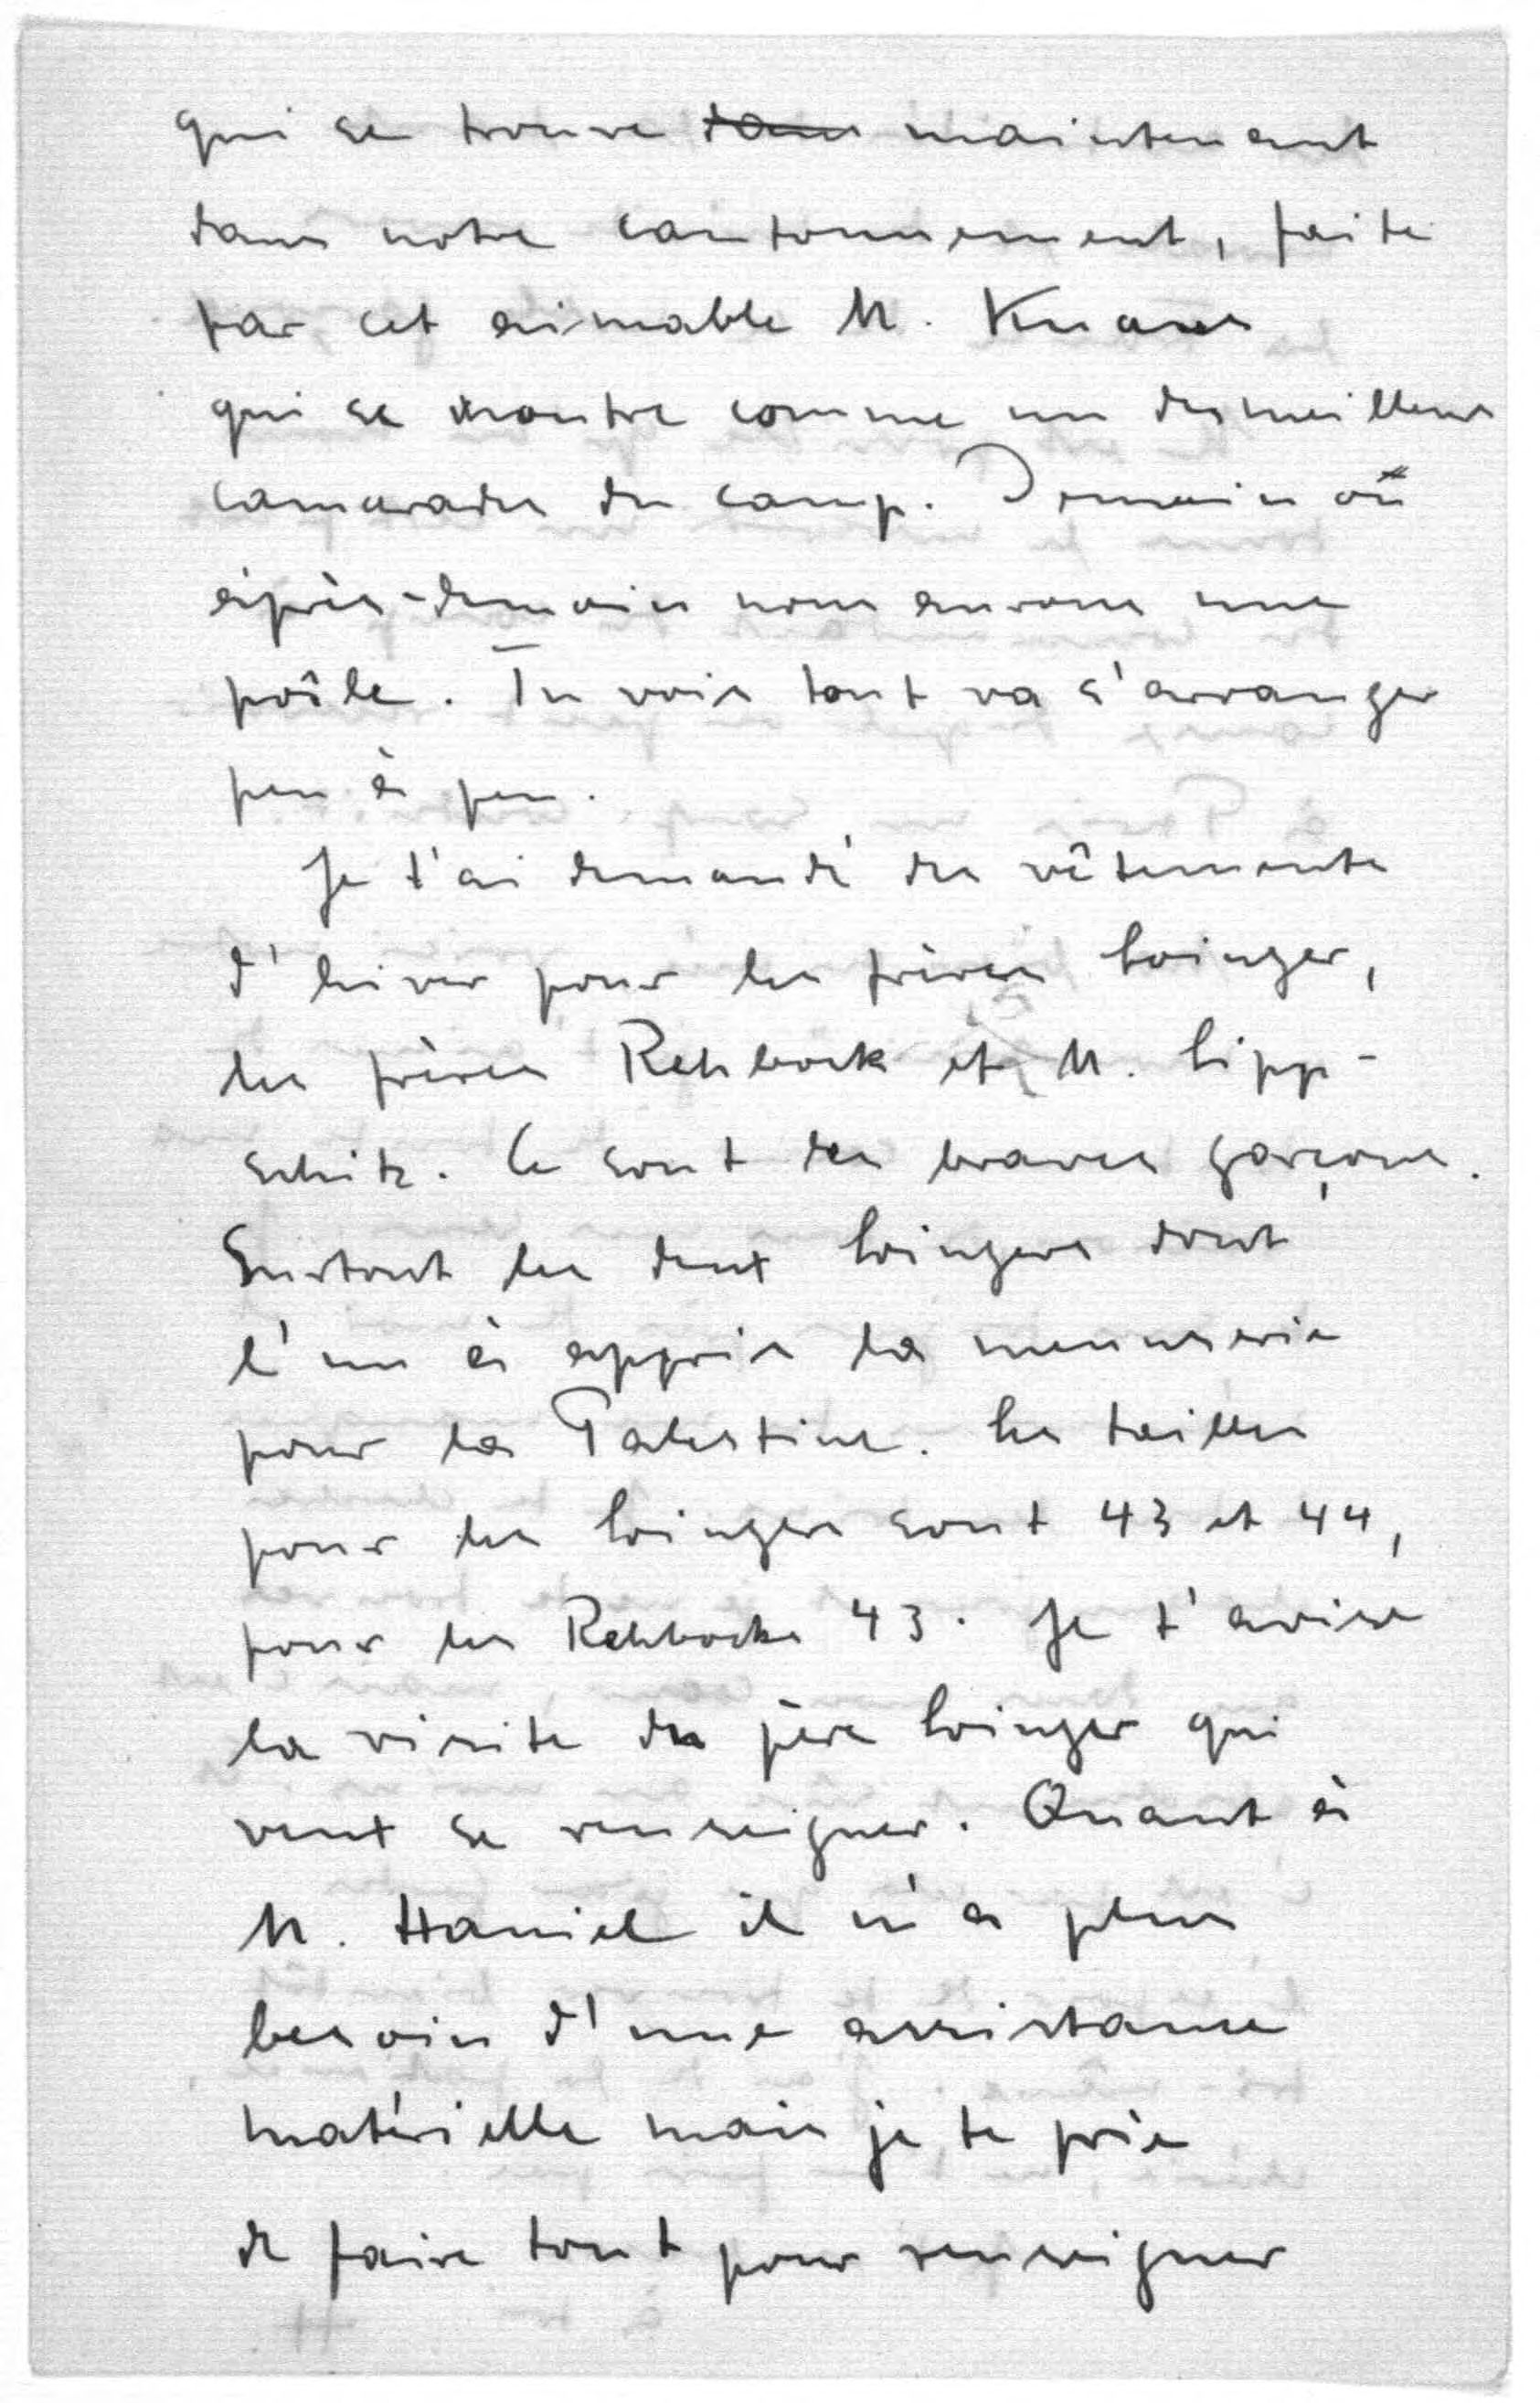 qui se trouve dans maintenant
dans notre cantonnement, faite
par cet aimable M. Knaus
qui se montre comme un des meilleurs
camarades du camp. Demain où
après-demain nous aurons une
poîle. Tu vois tout va s'arranger
peu à peu.
Je t'ai demandé des vêtements
d'hiver pour les frères Loinger,
les frères Rehbock et M. Lipp-
schitz. Ce sont des braves garçons.
Surtout les deux Loingers dont
l'un à appris la menuserie
pour la Palestine. Les tailles
pour les Loingers sont 43 et 44,
pour les Rehbocks 43. Je t'avise
la visite du père Loinger qui
veux se renseigner. Quant à
M. Haniel il n'a plus
besoin d'une assistance
matérielle mais je te prie
de faire tout pour renseigner